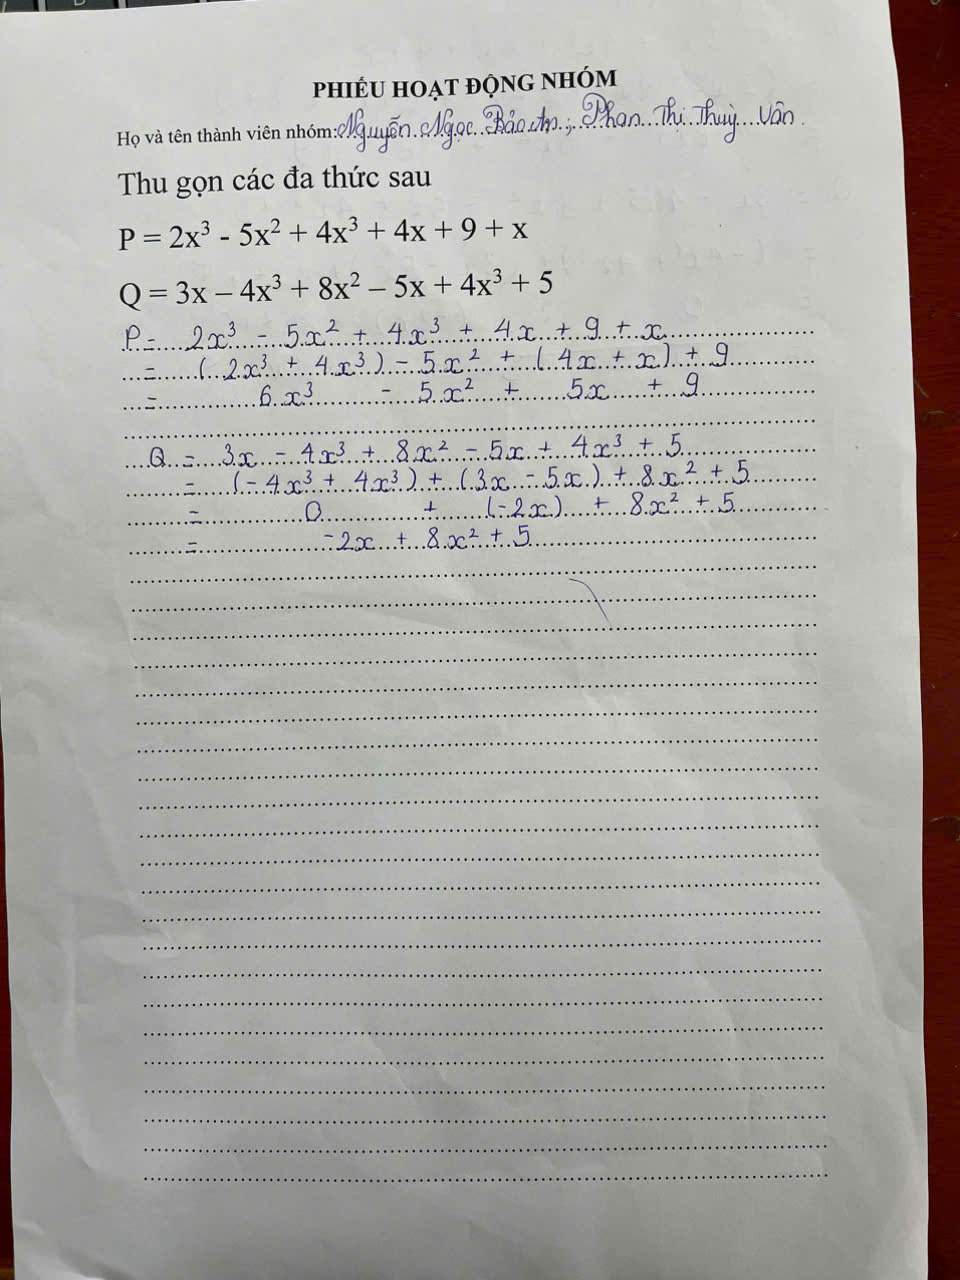 PHIẾU HOẠT ĐỘNG NHÓM
Họ và tên thành viên nhóm: Nguyễn Ngọc Bảo An; Phan Thị Thuỳ Vân
Thu gọn các đa thức sau
P = 2x³ - 5x² + 4x³ + 4x + 9 + x
Q = 3x – 4x³ + 8x² – 5x + 4x³ + 5
P = 2x³ - 5x² + 4x³ + 4x + 9 + x
= (2x³ + 4x³) - 5x² + (4x + x) + 9
= 6x³ - 5x² + 5x + 9
Q = 3x - 4x³ + 8x² - 5x + 4x³ + 5
= (-4x³ + 4x³) + (3x - 5x) + 8x² + 5
= 0 + (-2x) + 8x² + 5
= -2x + 8x² + 5